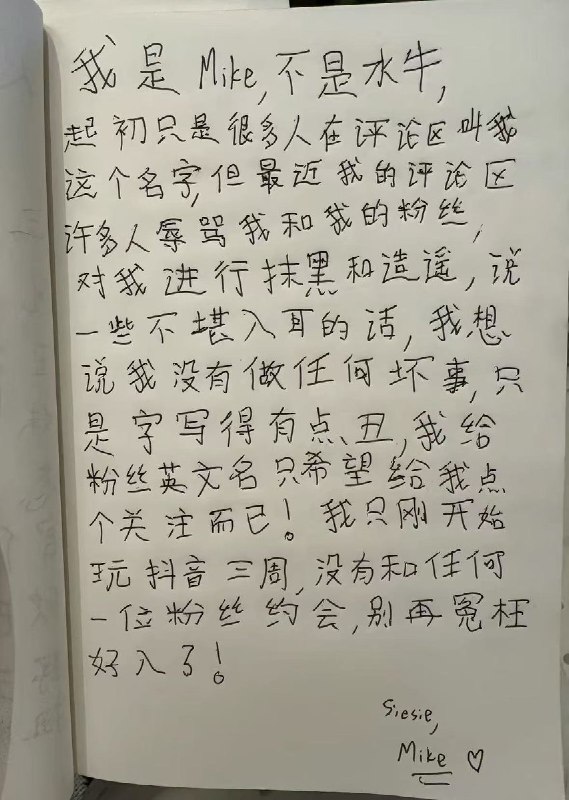 我是Mike,不是水牛,
起初只是很多人在评论区叫我
这个名字,但最近我的评论区
许多人辱骂我和我的粉丝,
对我进行抹黑和造谣,说
一些不堪入耳的话,我想
说我没有做任何坏事,只
是字写得有点丑,我给
粉丝英文名只希望给我点
个关注而已!我只刚开始
玩抖音三周,没有和任何
一位粉丝约会,别再冤枉
好人了!
Siesie,
Mike ♡